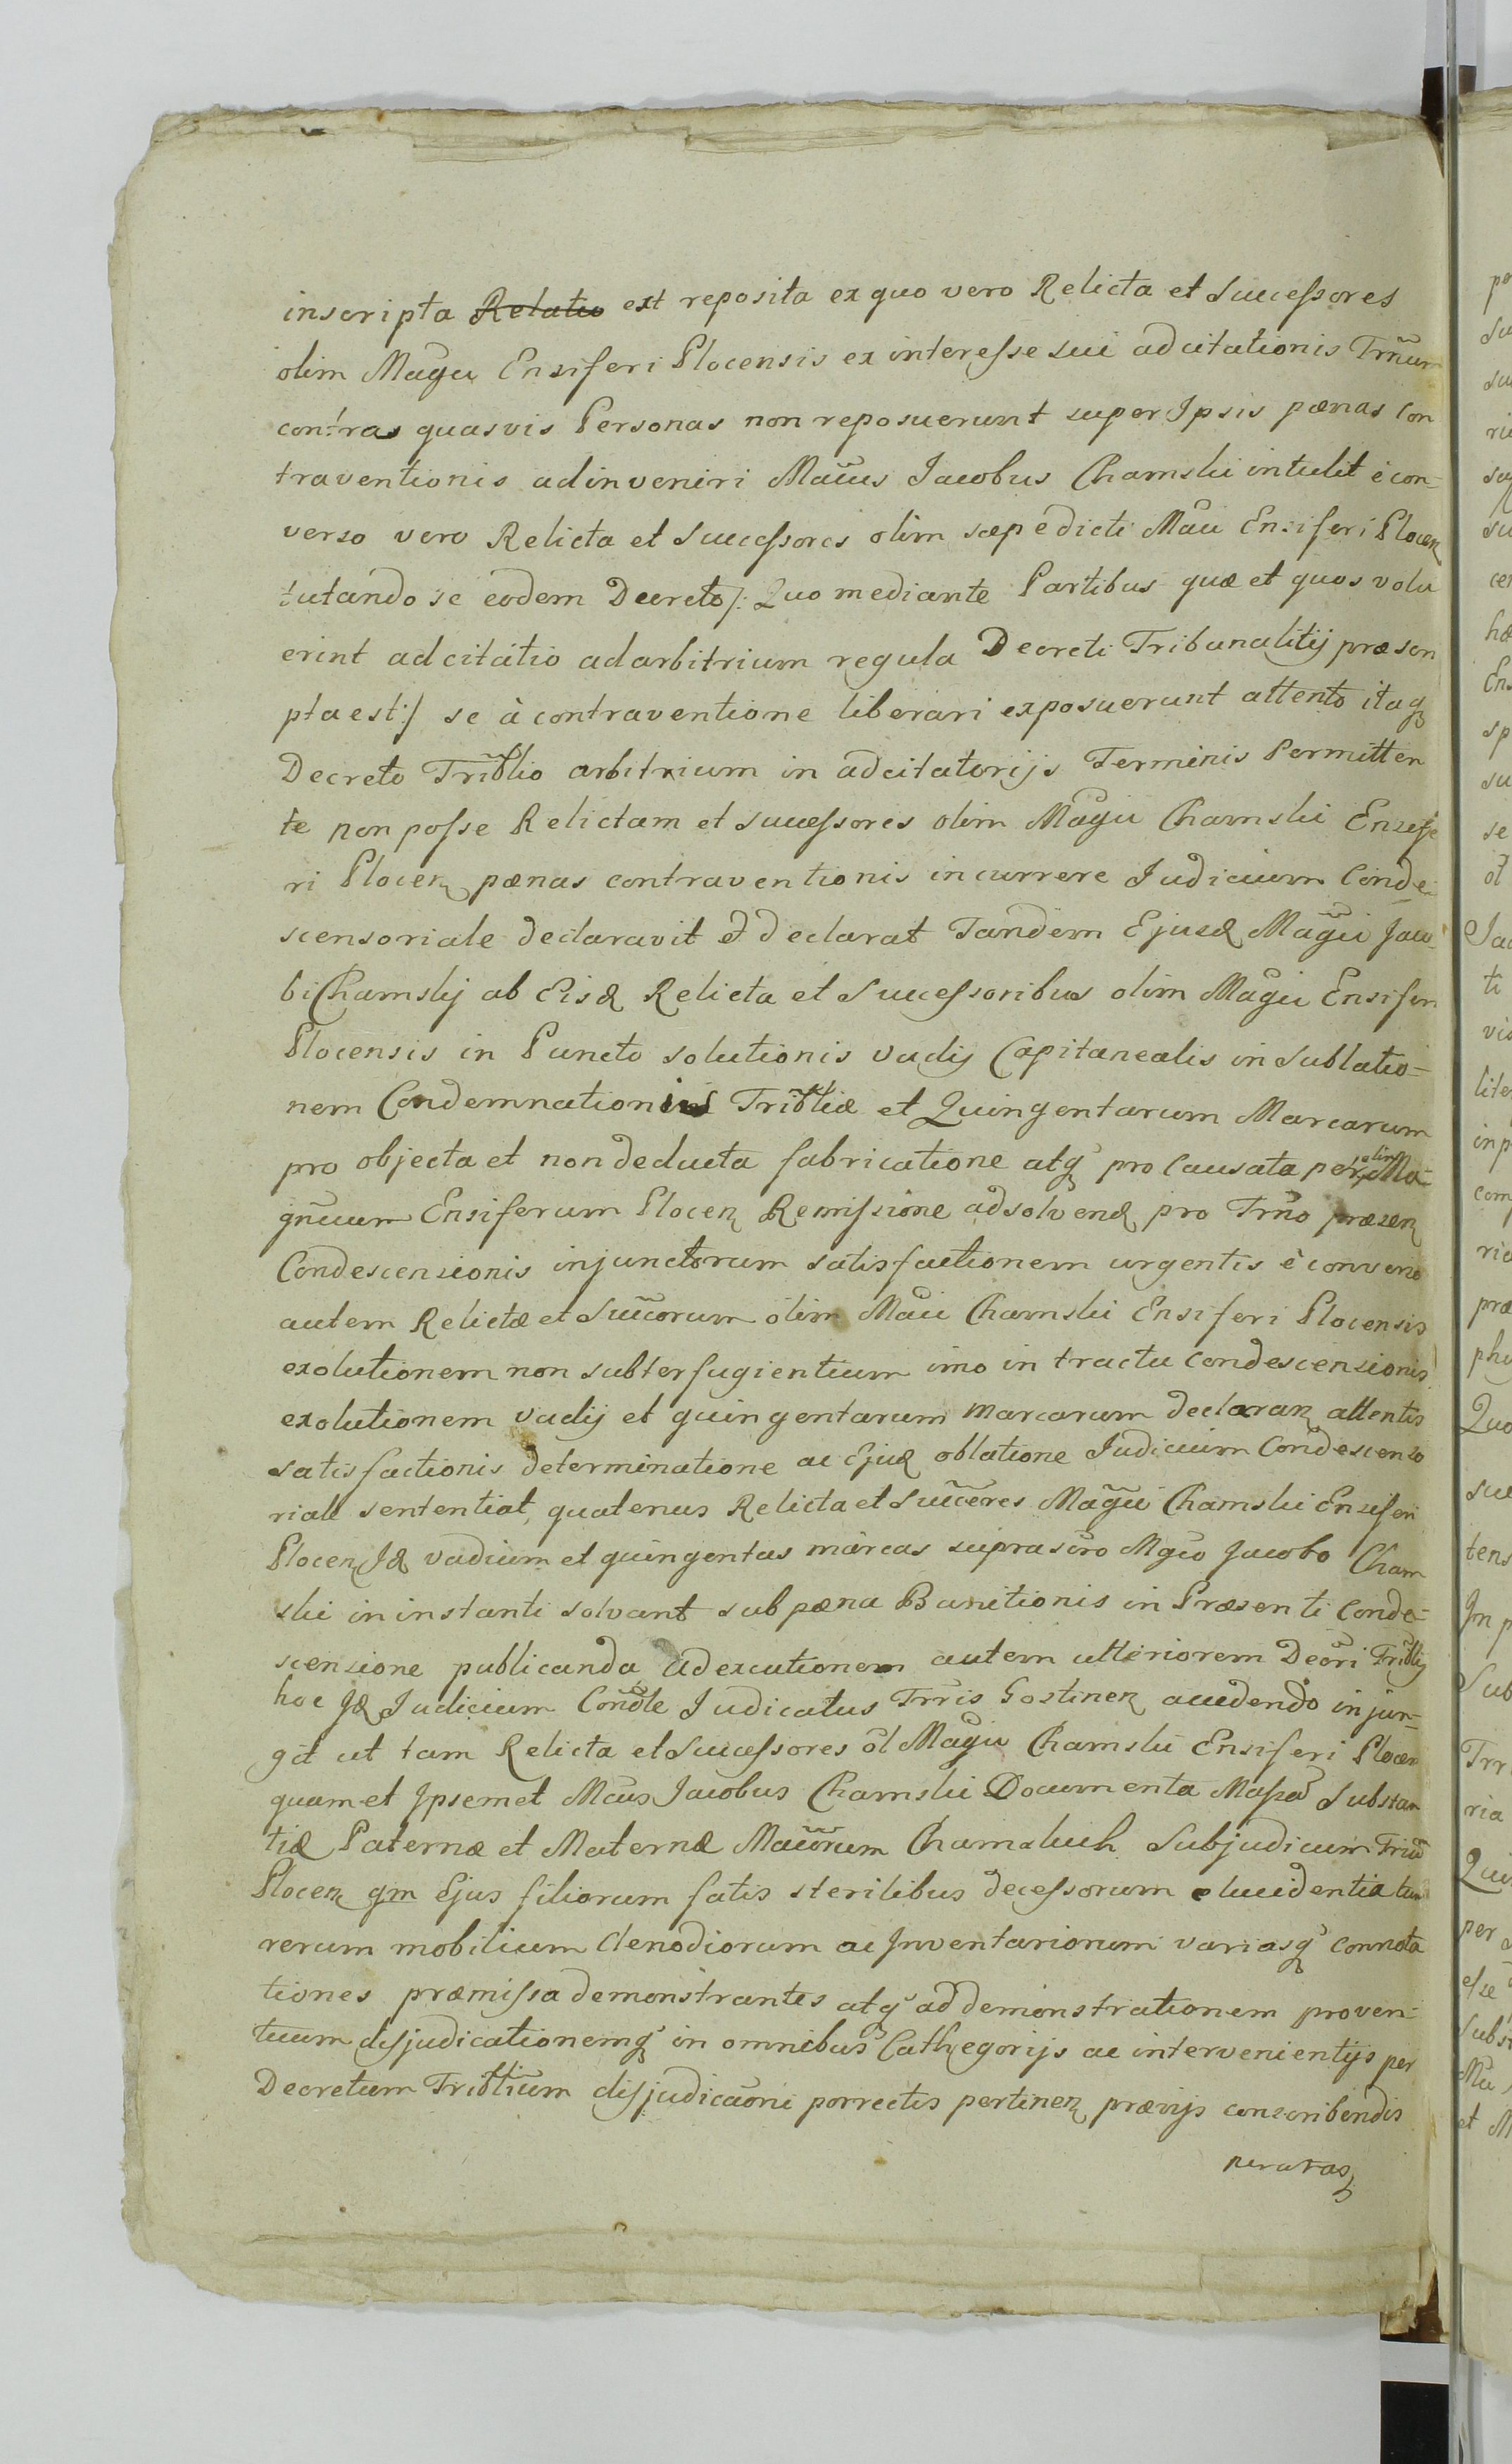 inscripta Relatio est reposita ex quo vero Relicta et Successores
olim Magci Ensiferi Plocensis ex interesse sui adcitationis Trñum
contras quasvis Personas non reposuerunt super Ipsis pænas Con
traventionis adinveniri Mãcus Jacobus Chamski intulit è con=
verso vero Relicta et Successores olim sæpedicti Mãci Ensiferi Plocen
tutando se eodem Decreto /: Quo mediante Partibus quæ et quos volu
erint adcitatio ad arbitrium regula Decreti Tribunalitij præscri
pta est :/ se à contraventione liberari exposuerunt attento itaq
Decreto Tribĩlio arbitrium in adcitatorijs Terminis Permitten
te non posse Relictam et Successores olim Magci Chamski Ensife
ri Plocen pænas contraventionis incurrere Judicium Conde
scensoriale declaravit et declarat Tandem Ejusd Magci Jaco
bi Chamskij ab Eisd Relicta et Successoribus olim Magci Ensiferi
Plocensis in Puncto solutionis vadij Capitanealis in Sublatio=
nem Condemnationis Tribĩliæ et Quingentarum Marcarum
pro objecta et non deducta fabricatione atq pro Causata per olim Ma=
gñcum Ensiferum Plocen Remissione adsolvend pro Trño præsen
Condescensionis injunctorum satisfactionem urgentis è converso
autem Relictæ et Succ̃orum olim Mãci Chamski Ensiferi Plocensis
exolutionem non subterfugientium imo in tractu condescensionis
exolutionem vadij et quingentarum marcarum declaran attentis
satisfactionis determinatione ac Ejusd oblatione Judicium Condescenso
riale sententiat, quatenus Relicta et Succ̃eres Magci Chamski Ensiferi
Plocen Id vadium et quingentas marcas suprascr̃o Mgco Jacobo Cham
ski in instanti solvant sub pæna Banitionis in Præsenti Conde=
scensione publicanda ad executionem autem ulteriorem Decr̃i Tribĩlij
hoc Id Judicium Cond̃le Judicatus Trris Gostinen accedendo injun=
git ut tam Relicta et Successores ol̃ Magci Chamski Ensiferi Plocen
quam et Ipsemet Mcus Jacobus Chamski Documenta Massã Substan
tiæ Paternæ et Maternæ Mãcorum Chamskich Subjudicum Trium
Plocen gm Ejus filiorum satis sterilibus decessorum elucidentia tum
rerum mobilium Clenodiorum ac Inventariorum variasq connota
tiones præmissa demonstrantes atq ad demonstrationem proven=
tuum disjudicationemq in omnibus Cathegorijs ac intervenientijs per
Decretum Tribĩlium disjudicaõni porrectis pertinen prævijs conscribendis